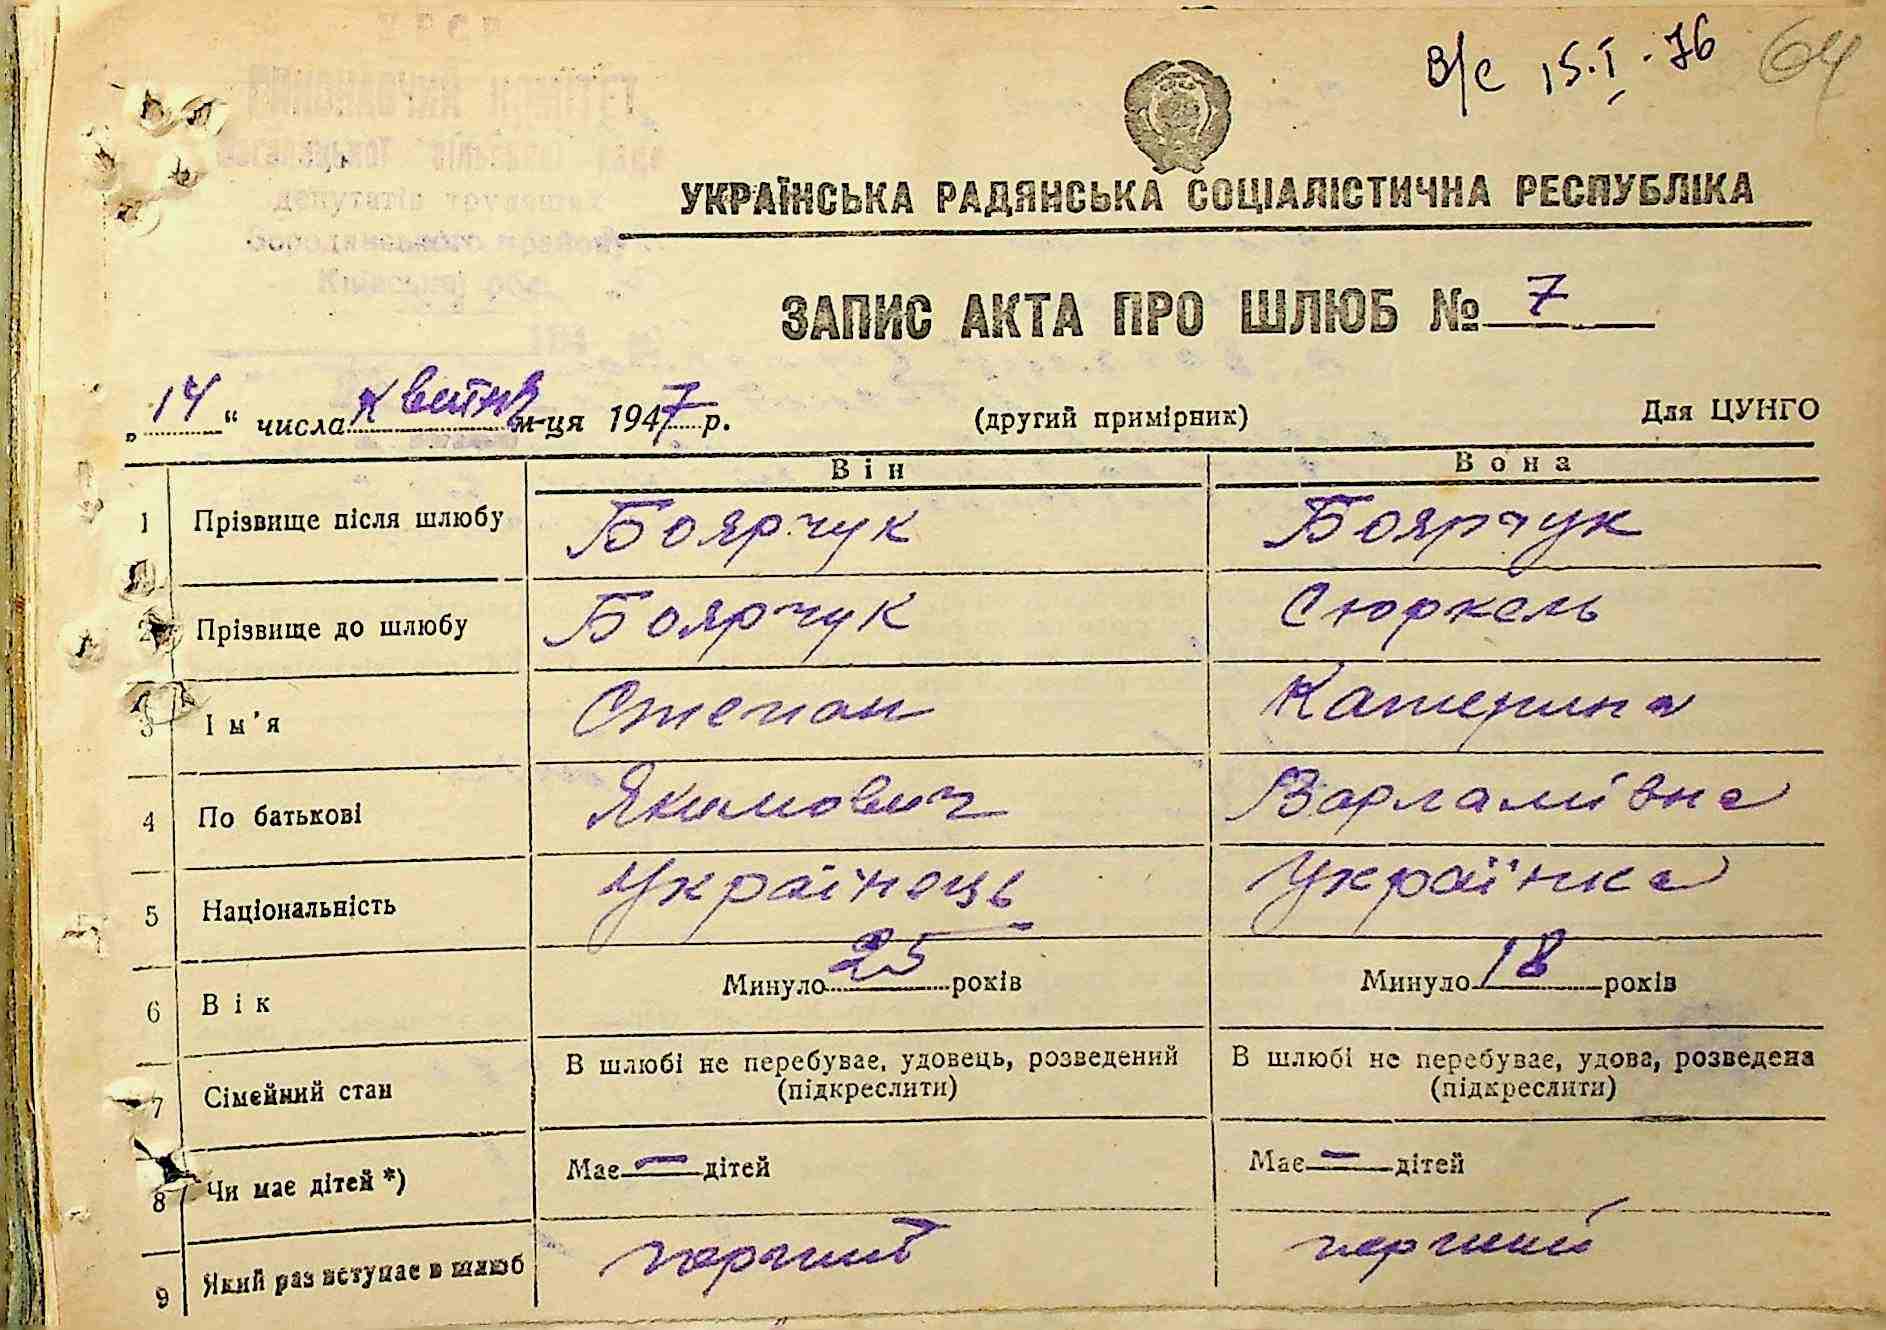 В/С 15.I.76 64
УКРАЇНСЬКА РАДЯНСЬКА СОЦІАЛІСТИЧНА РЕСПУБЛІКА
ЗАПИС АКТА ПРО ШЛЮБ № 7
„14“ числа квітня м-ця 1947 р. (другий примірник) Для ЦУНГО
Він Вона
1 Прізвище після шлюбу Боярчук Боярчук
2 Прізвище до шлюбу Боярчук Сюркель
3 Ім'я Степан Катерина
4 По батькові Якимович Варламівна
5 Національність Українець Українка
6 Вік Минуло 25 років Минуло 18 років
7 Сімейний стан В шлюбі не перебуває, удовець, розведений В шлюбі не перебуває, удова, розведена
(підкреслити) (підкреслити)
8 Чи має дітей *) Має — дітей Має — дітей
9 Який раз вступає в шлюб перший перший